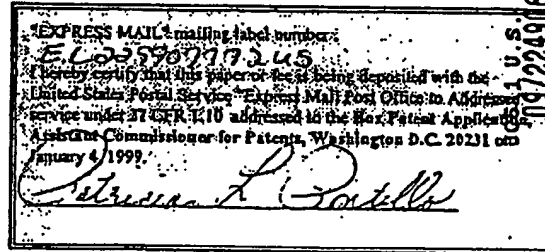 "EXPRESS MAIL" mailing label number:
EL229907772US
I hereby certify that this paper or fee is being deposited with the
United States Postal Service "Express Mail Post Office to Addressee"
service under 37 CFR 1.10 addressed to the Box Patent Application,
Assistant Commissioner for Patents, Washington D.C. 20231 on
January 4, 1999.
Patricia L Portello
U.S.